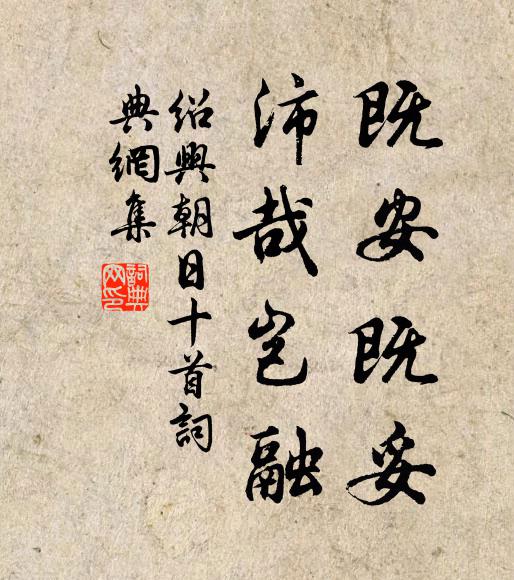 既安既妥
沛哉岂融
绍興朝日十首詞
典網集
詞典
网印